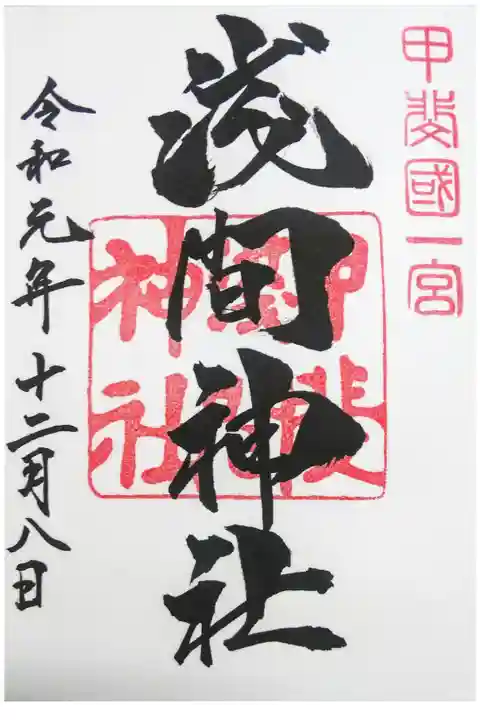 甲斐國一宮
浅間神社
甲斐
神社
令和元年十二月八日